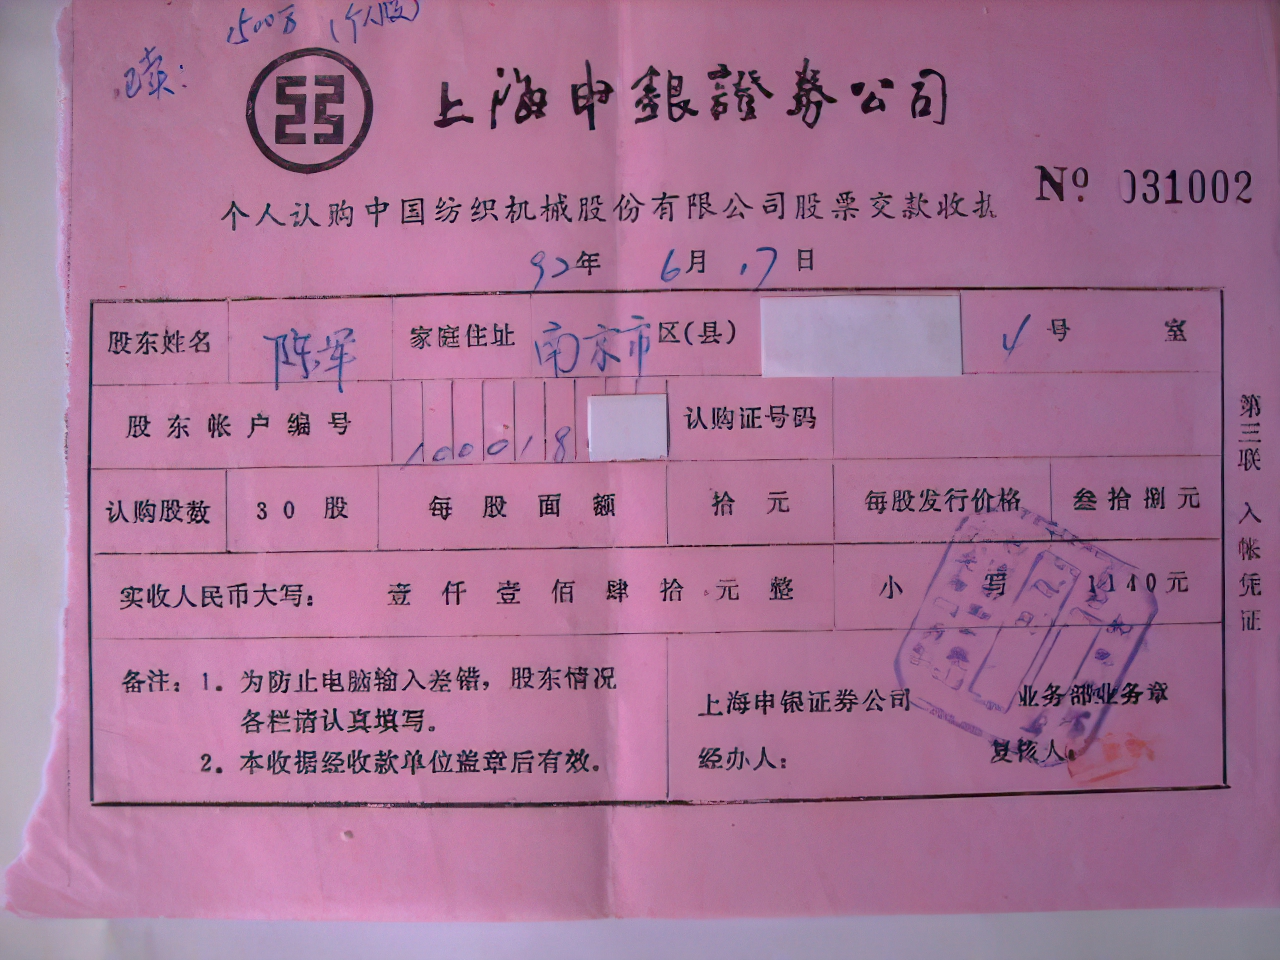 1500万 (个人股)
已卖:
上海申銀證券公司
Nº 031002
个人认购中国纺织机械股份有限公司股票交款收据
92年 6月 17日
股东姓名 陈军 家庭住址 南京市 区(县) 4号 室
股东帐户编号 100018 认购证号码
认购股数 30股 每股面额 拾元 每股发行价格 叁拾捌元
实收人民币大写: 壹仟壹佰肆拾元整 小写 1140元
备注: 1. 为防止电脑输入差错, 股东情况
各栏请认真填写。
2. 本收据经收款单位盖章后有效。
上海申银证券公司 业务部业务章
经办人: 复核人:
第三联 入帐凭证